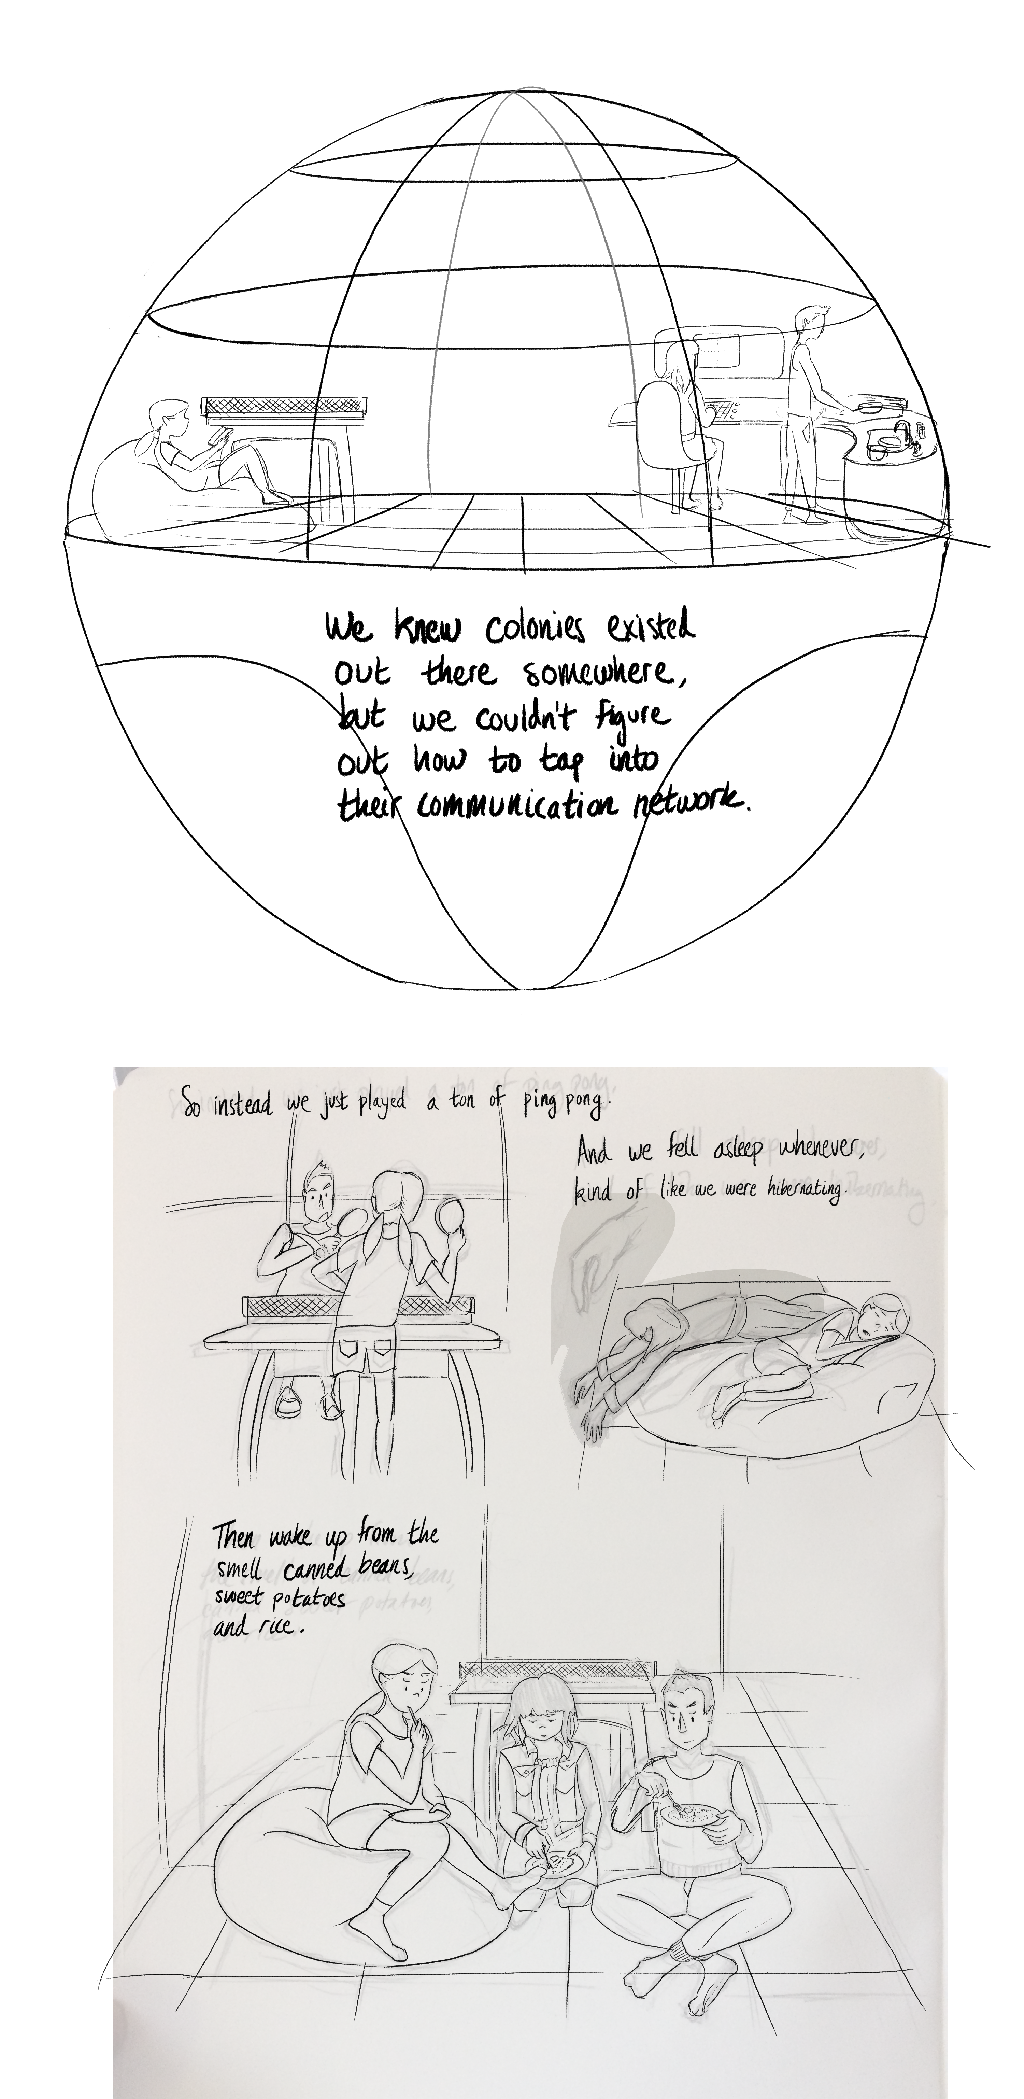 We knew colonies existed
out there somewhere,
but we couldn't figure
out how to tap into
their communication network.
So instead we just played a ton of ping pong.
And we fell asleep whenever,
kind of like we were hibernating.
Then wake up from the
smell canned beans,
sweet potatoes
and rice.